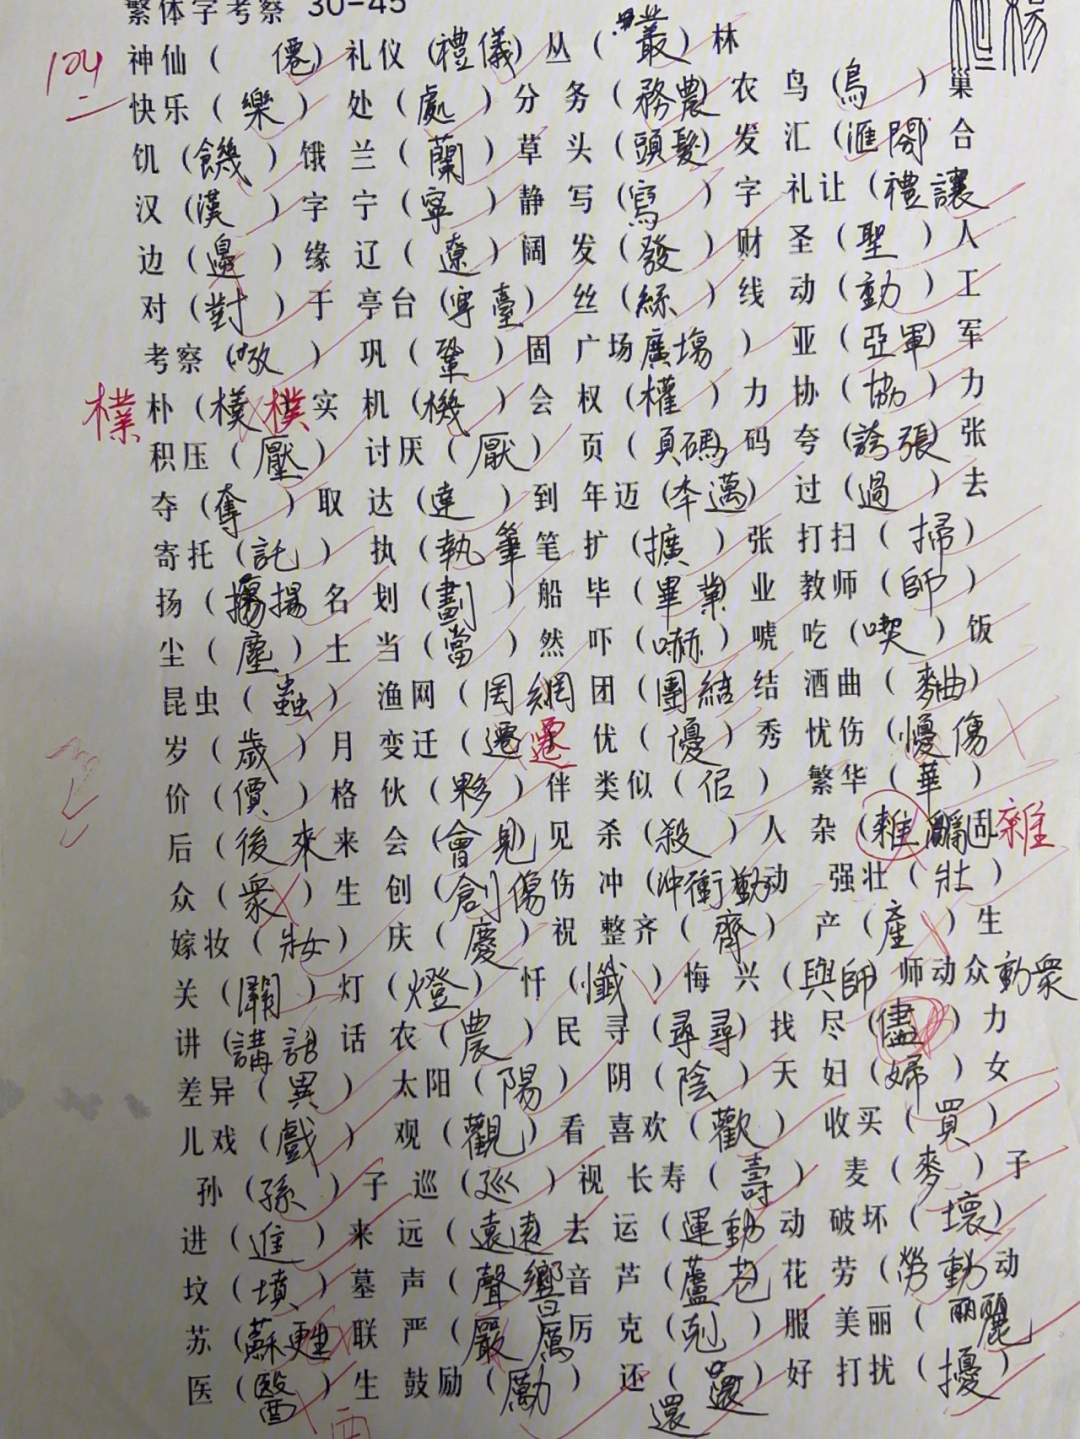 繁体字考察 30-45
124
神仙(僊)礼仪(禮儀)丛(叢)林
快乐(樂)处(處)分务(務農)农鸟(鳥)巢
饥(饑)饿兰(蘭)草头(頭髮)发汇(滙閤)合
汉(漢)字宁(寧)静写(寫)字礼让(禮讓
边(邊)缘辽(遼)阔发(發)财圣(聖)人
对(對)于亭台(亭臺)丝(絲)线动(動)工
考察(攷)巩(鞏)固广场廣場)亚(亞軍)军
樸 朴(樸樸实机(機)会权(權)力协(協)力
积压(壓)讨厌(厭)页(頁碼码夸(誇張)张
夺(奪)取达(達)到年迈(年邁)过(過)去
寄托(託)执(執筆笔扩(擴)张打扫(掃)
扬(揚揚名划(劃)船毕(畢業业教师(師)
尘(塵)土当(當)然吓(嚇)唬吃(喫)饭
昆虫(蟲)渔网(罔網团(團結结酒曲(麯)
岁(歲)月变迁(遷遷优(優)秀忧伤(憂傷
价(價)格伙(夥)伴类似(佀)繁华(華)
后(後來来会(會見)见杀(殺)人杂(雜亂雜
众(衆)生创(創傷伤冲(沖衝動动强壮(壯)
嫁妆(妝)庆(慶)祝整齐(齊)产(產)生
关(關)灯(燈)忏(懺)悔兴(興師师动众動衆
讲(講話话农(農)民寻(尋尋)找尽(儘)力
差异(異)太阳(陽)阴(陰)天妇(婦)女
儿戏(戲)观(觀)看喜欢(歡)收买(買)
孙(孫)子巡(巡)视长寿(壽)麦(麥)子
进(進)来远(遠遠去运(運動动破坏(壞)
坟(墳)墓声(聲響音芦(蘆花花劳(勞動动
苏(蘇甦联严(嚴厲厉克(剋)服美丽(麗
医(醫)生鼓励(勵)还(還)好打扰(擾)
西 還